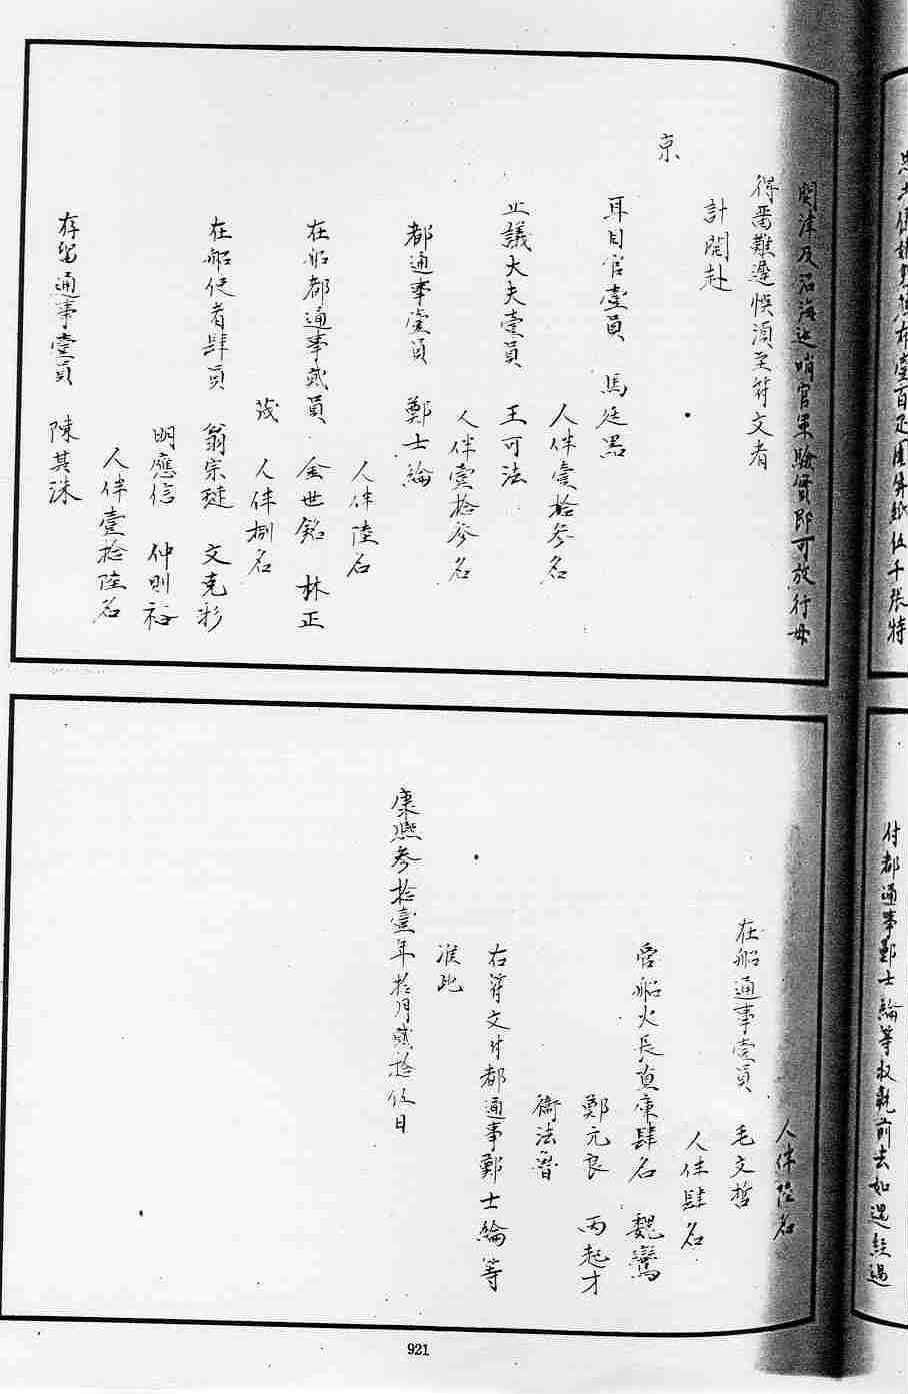 付都通事鄭士綸等收執前去如遇經過
關津及沿海巡哨官軍驗實即可放行毋
得留難遲悞須至符文者
計開赴
京
耳目官壹員 馬廷器
人伴壹拾參名
正議大夫壹員 王可法
人伴壹拾參名
都通事壹員 鄭士綸
人伴陸名
在船都通事貳員 金世銘 林正
茂 人伴捌名
在船使者肆員 翁宗璉 文克彩
明應信 仲則裕
人伴壹拾陸名
存留通事壹員 陳其洙
人伴陸名
在船通事壹員 毛文哲
人伴肆名
管船火長直庫肆名 魏鸞
鄭元良 丙起才
衛法魯
右符文付都通事鄭士綸等
准此
康熙參拾壹年拾月貳拾伍日
921